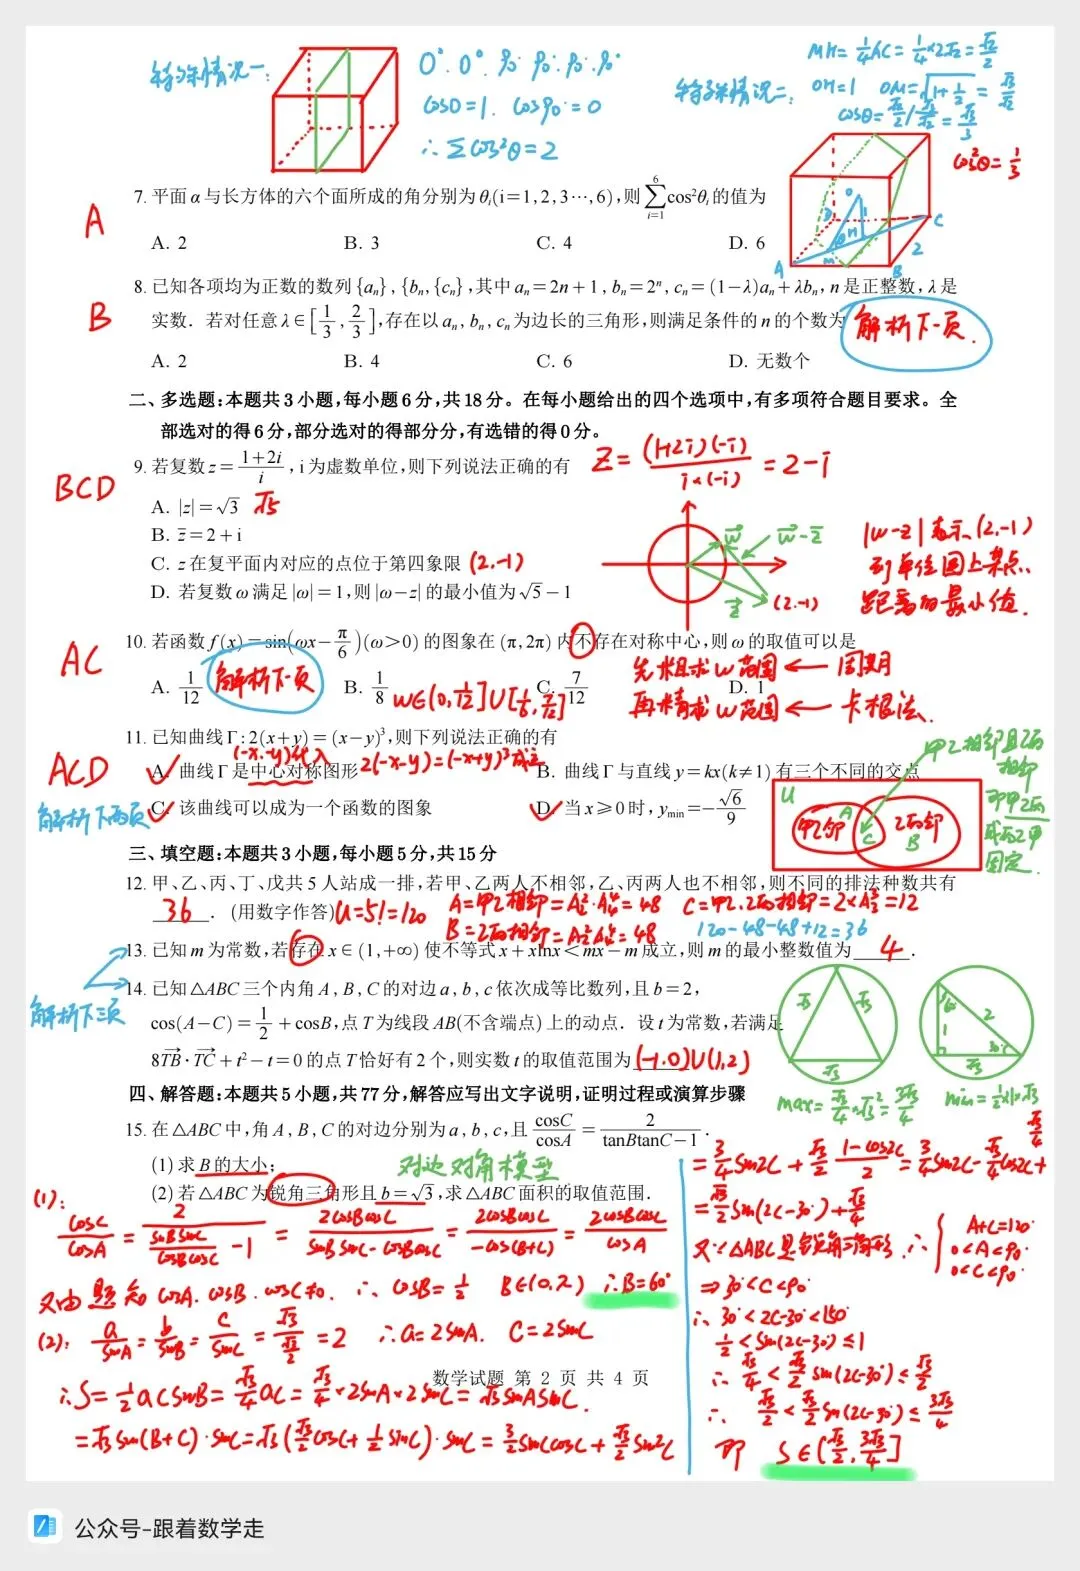 特殊情况一:
0°. 0°. 90° 90°. 90°. 90°
cos0=1. cos90°=0
∴ Σcos²θ=2
特殊情况二:
MH=¼AC=¼×2√2=√2/2
OH=1 OM=√(1+½)=√3/√2
cosθ=√2/2/√3/√2=√3/3
cos²θ=1/3
A
7. 平面α与长方体的六个面所成的角分别为θᵢ(i=1,2,3…,6),则∑(i=1→6)cos²θᵢ的值为
A. 2 B. 3 C. 4 D. 6
B
8. 已知各项均为正数的数列{aₙ},{bₙ,{cₙ},其中aₙ=2n+1,bₙ=2ⁿ,cₙ=(1-λ)aₙ+λbₙ,n是正整数,λ是
实数. 若对任意λ∈[1/3,2/3],存在以aₙ,bₙ,cₙ为边长的三角形,则满足条件的n的个数为
解析下一页.
A. 2 B. 4 C. 6 D. 无数个
二、多选题:本题共3小题,每小题6分,共18分。在每小题给出的四个选项中,有多项符合题目要求。全
部选对的得6分,部分选对的得部分分,有选错的得0分。
BCD
9. 若复数z=(1+2i)/i,i为虚数单位,则下列说法正确的有
Z=(1+2i)(-i)/i×(-i)=2-i
A. |z|=√3 √5
B. z̄=2+i
C. z在复平面内对应的点位于第四象限 (2.-1)
D. 若复数ω满足|ω|=1,则|ω-z|的最小值为√5-1
|w-z|表示(2,-1)
到单位圆上某点
距离的最小值.
(2.-1)
AC
10. 若函数f(x)=sin(ωx-π/6)(ω>0)的图象在(π,2π)内不存在对称中心,则ω的取值可以是
A. 1/12 B. 1/8 C. 7/12 D. 1
解析下页
W∈(0,1/12]∪[1/6,7/12]
先粗求w范围 ← 周期
再精求w范围 ← 卡根法.
ACD
11. 已知曲线Γ:2(x+y)=(x-y)³,则下列说法正确的有
(-x,-y)代入
A. 曲线Γ是中心对称图形 2(-x-y)=(-x+y)³成立
B. 曲线Γ与直线y=kx(k≠1)有三个不同的交点
C. 该曲线可以成为一个函数的图象
D. 当x≥0时,yₘᵢₙ=-√6/9
解析下两页
U
甲乙邻 A
C
乙丙邻 B
甲乙相邻且乙丙
相邻
即甲乙丙
或丙乙甲
固定.
三、填空题:本题共3小题,每小题5分,共15分
12. 甲、乙、丙、丁、戊共5人站成一排,若甲、乙两人不相邻,乙、丙两人也不相邻,则不同的排法种数共有
36 . (用数字作答)
U=5!=120 A=甲乙相邻=A₂²·A₄⁴=48 C=甲乙.乙丙相邻=2×A₃³=12
B=乙丙相邻=A₂²A₄⁴=48 120-48-48+12=36
13. 已知m为常数,若存在x∈(1,+∞)使不等式x+xlnx<mx-m成立,则m的最小整数值为 4 .
解析下三页
14. 已知△ABC三个内角A,B,C的对边a,b,c依次成等比数列,且b=2,
cos(A-C)=1/2+cosB,点T为线段AB(不含端点)上的动点. 设t为常数,若满足
8TB·TC+t²-t=0的点T恰好有2个,则实数t的取值范围为 (-1.0)∪(1,2)
四、解答题:本题共5小题,共77分,解答应写出文字说明,证明过程或演算步骤
max=√3/4×√3²=3√3/4
min=½×1×√3
√3/4
15. 在△ABC中,角A,B,C的对边分别为a,b,c,且cosC/cosA=2/(tanBtanC-1).
(1)求B的大小;
对边对角模型
(2)若△ABC为锐角三角形且b=√3,求△ABC面积的取值范围.
(1):
cosC/cosA=2/(sinBsinC/cosBcosC-1)=2cosBcosC/(sinBsinC-cosBcosC)=2cosBcosC/-cos(B+C)=2cosBcosC/cosA
又由题知cosA.cosB.cosC≠0. ∴cosB=½ B∈(0,π) ∴B=60°
(2): a/sinA=b/sinB=c/sinC=√3/(√3/2)=2 ∴a=2sinA. C=2sinC
∴S=½acsinB=√3/4ac=√3/4×2sinA×2sinC=√3sinAsinC.
=√3sin(B+C)·sinC=√3(√3/2cosC+½sinC)·sinC=3/2sinCcosC+√3/2sin²C
=3/4sin2C+√3/2·(1-cos2C)/2=3/4sin2C-√3/4cos2C+
=√3/2sin(2C-30°)+√3/4
又∵△ABC是锐角三角形 ∴
A+C=120°
0<A<90°
0<C<90°
⇒30°<C<90°
∴30°<2C-30°<150°
½<sin(2C-30°)≤1
∴√3/4<√3/2sin(2C-30°)≤√3/2
∴√3/2<√3/2sin(2C-30°)≤3√3/4
即 S∈(√3/2,3√3/4]
数学试题 第 2 页 共 4 页
公众号-跟着数学走